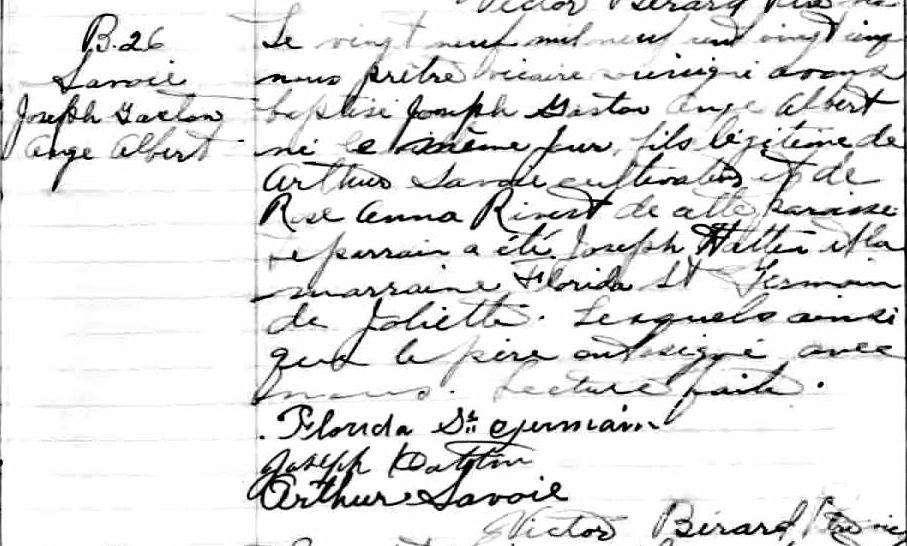 Victor Bérard Ptre
B.26
Savoie
Joseph Gaston
Ange Albert
Le vingt neuf mil neuf cent vingt cinq
nous prêtre vicaire soussigné avons
baptisé Joseph Gaston Ange Albert
né le même jour, fils légitime de
Arthur Savoie cultivateur et de
Rose Anna Rivest de cette paroisse
Le parrain a été Joseph et la
marraine Florida St Germain
de Joliette. Lesquels ainsi
que le père ont signé avec
nous. Lecture faite.
Florida St Germain
Joseph
Arthur Savoie
Victor Bérard Ptre vic